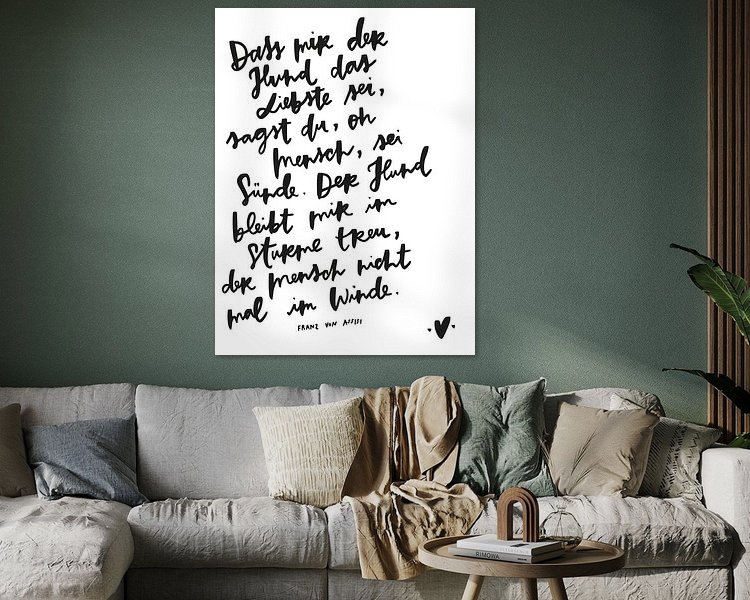 Dass mir der
Hund das
Liebste sei,
sagst du, oh
Mensch, sei
Sünde. Der Hund
bleibt mir im
Sturme treu,
der Mensch nicht
mal im Winde.
FRANZ VON ASSISI
RIMOWA